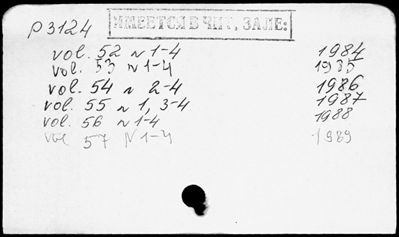 р 3124
ИМЕЕТСЯ В ЧИТ. ЗАЛЕ:
vol. 52 N 1-4 1984
vol. 53 N 1-4 1985
vol. 54 N 2-4 1986
vol. 55 N 1, 3-4 1987
vol. 56 N 1-4 1988
vol 57 N 1-4 1989